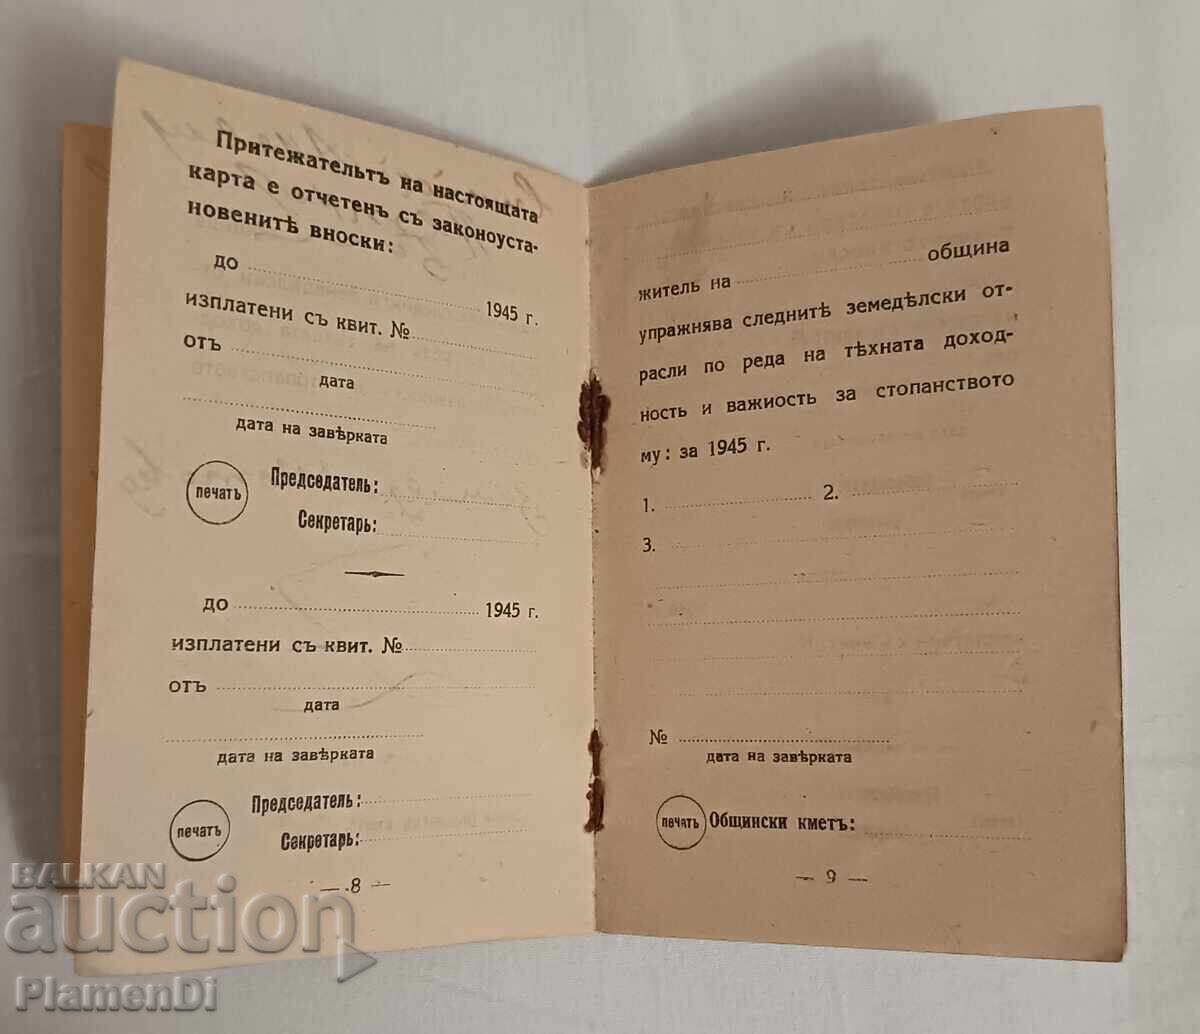 Притежательтъ на настоящата
карта е отчетенъ съ законоуста-
новенитѣ вноски:
до ........ 1945 г.
изплатени съ квит. № ........
отъ ........
дата
дата на завѣрката
печатъ
Председатель:
Секретарь:
до ........ 1945 г.
изплатени съ квит. № ........
отъ ........
дата
дата на завѣрката
печатъ
Председатель:
Секретарь:
— 8 —
житель на ........ община
упражнява следнитѣ земедѣлски от-
расли по реда на тѣхната доход-
ность и важиость за стопанството
му: за 1945 г.
1. ........ 2. ........
3. ........
№ ........
дата на завѣрката
печатъ Общински кметъ:
— 9 —
BALKAN
auction
PlamenDi